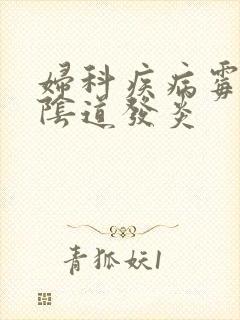 婦科疾病霉
陰道發炎
青狐妖1